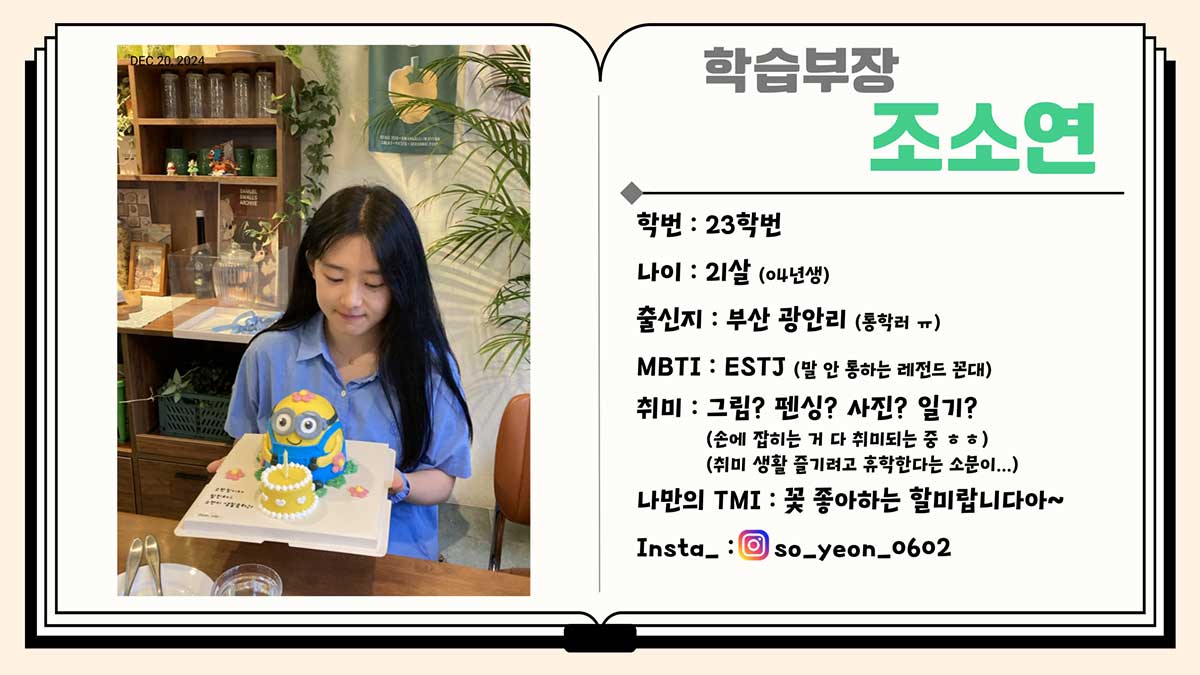 DEC 20, 2024
SAMUEL
SMALLS
ARCHIVE
학습부장
조소연
학번 : 23학번
나이 : 21살 (04년생)
출신지 : 부산 광안리 (통학러 ㅠ)
MBTI : ESTJ (말 안 통하는 레전드 꼰대)
취미 : 그림? 펜싱? 사진? 일기?
(손에 잡히는 거 다 취미되는 중 ㅎㅎ)
(취미 생활 즐기려고 휴학한다는 소문이...)
나만의 TMI : 꽃 좋아하는 할미랍니다아~
Insta_ : so_yeon_0602